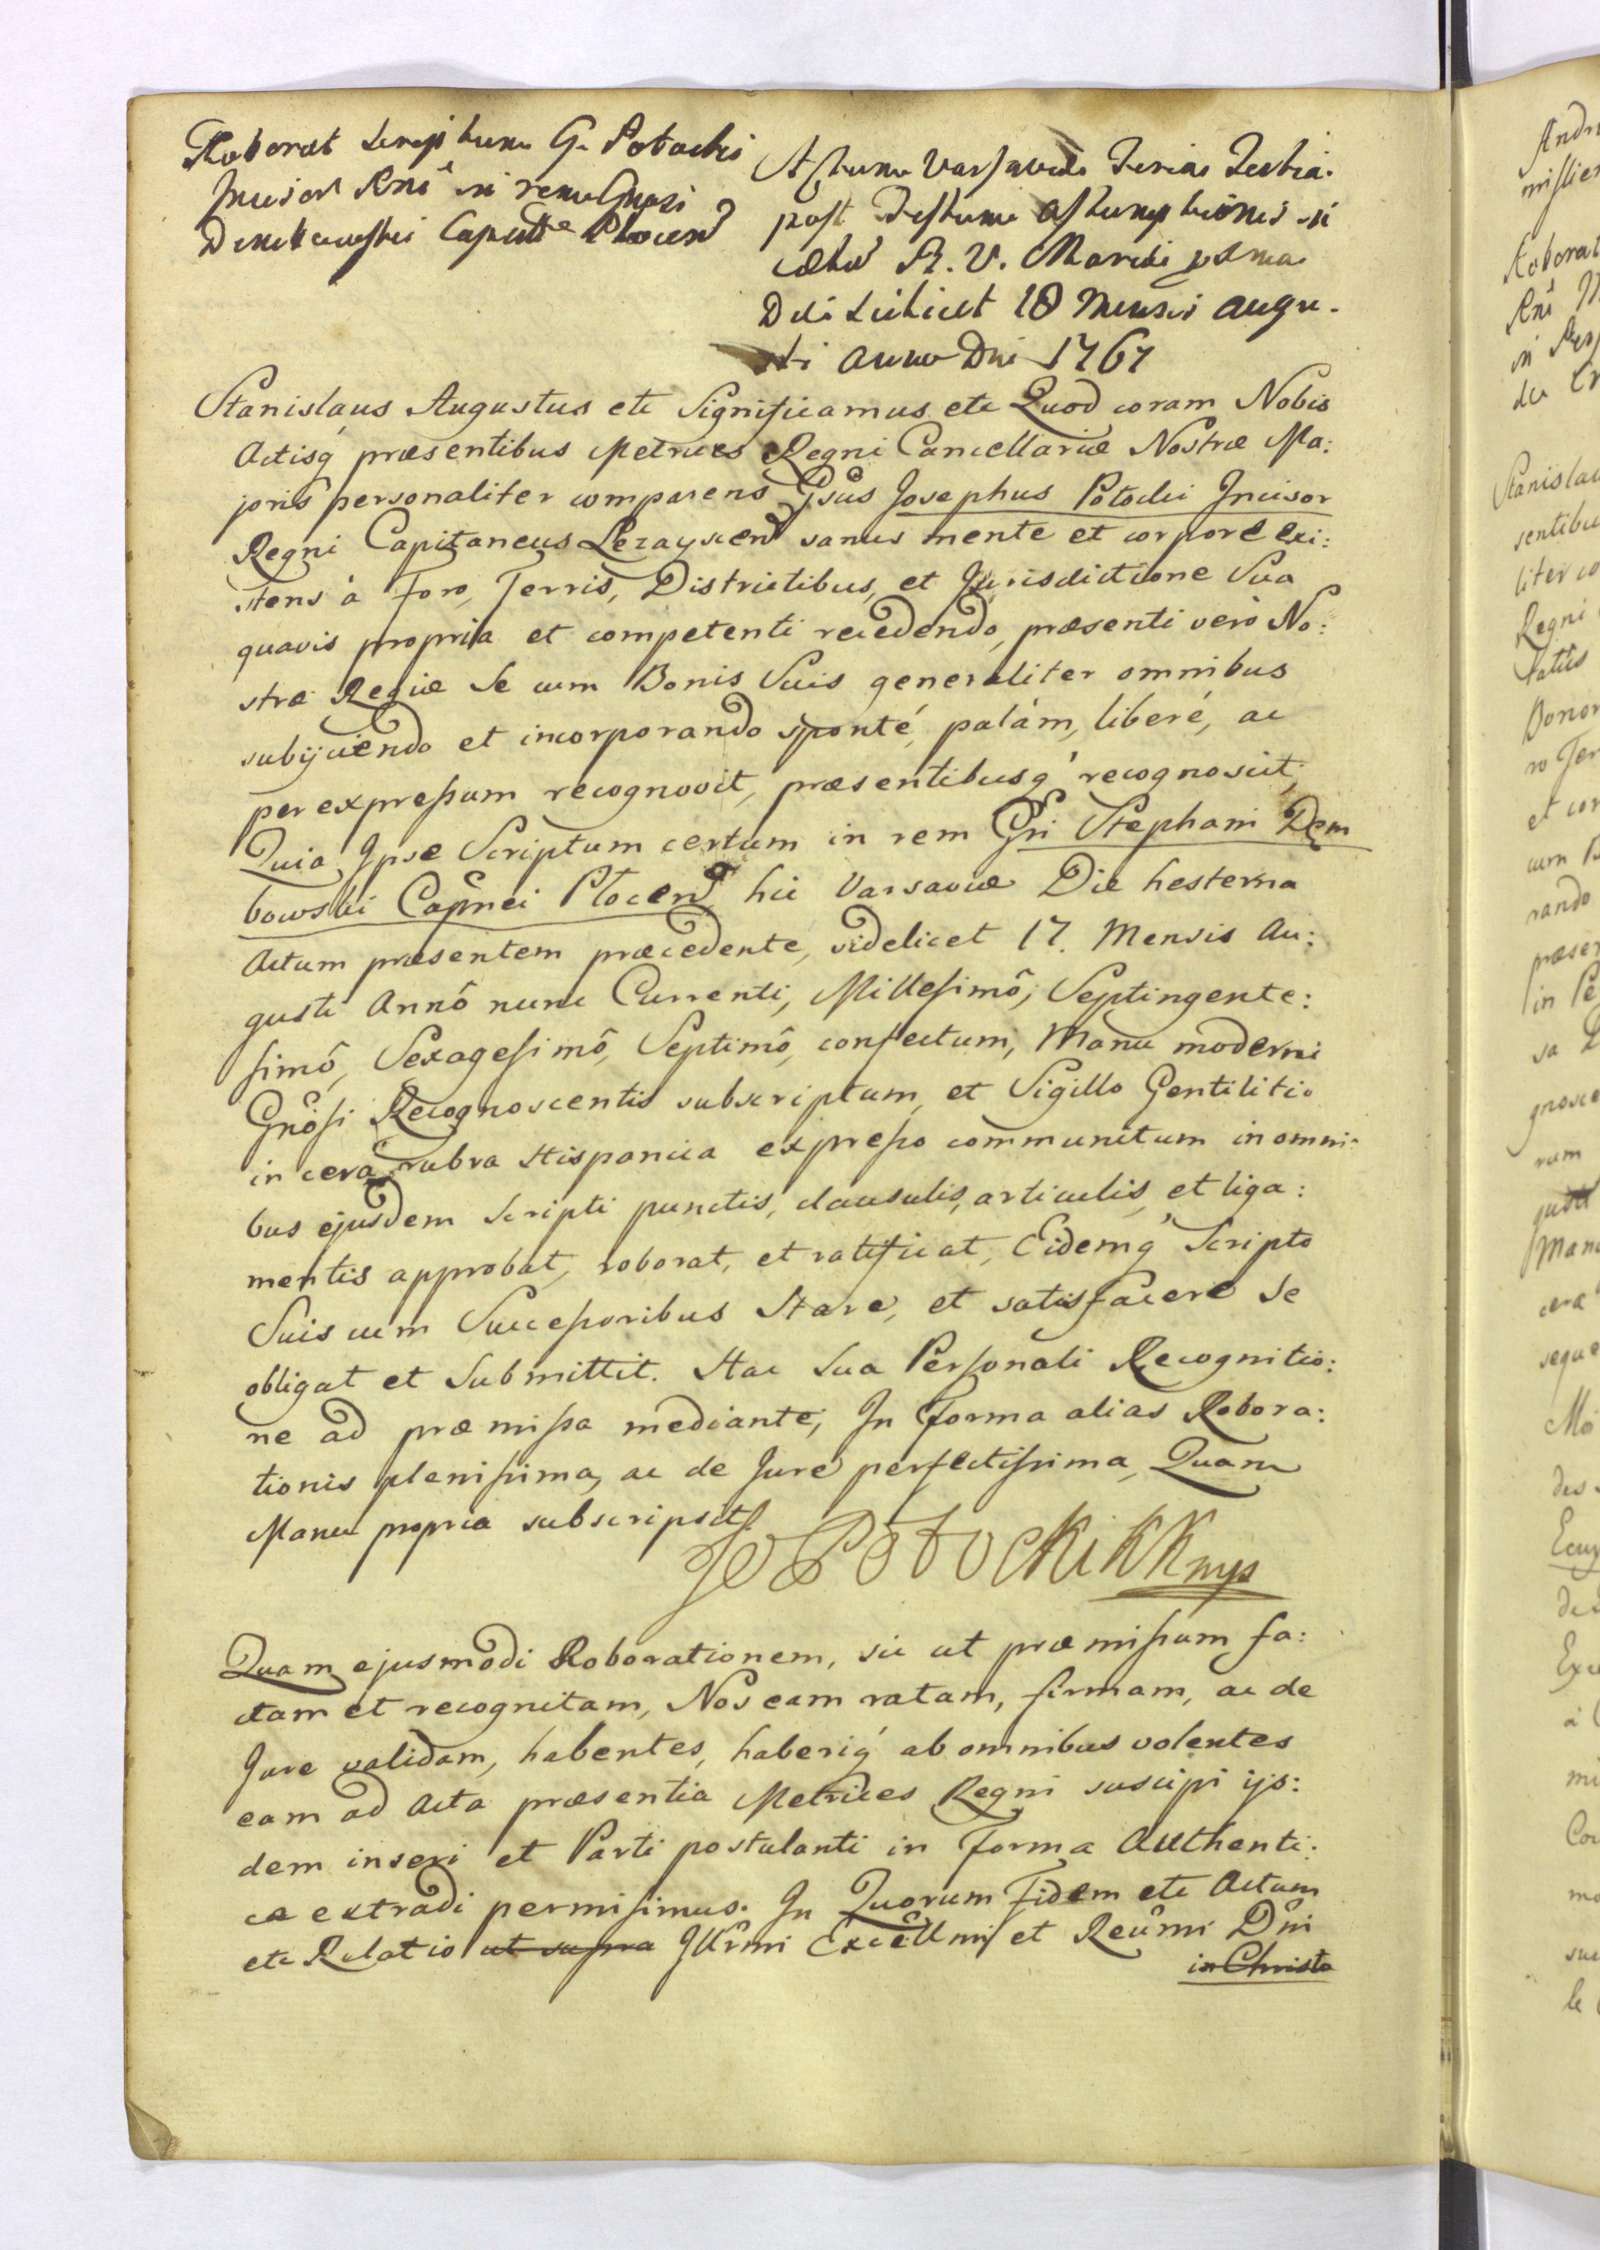 Roborat scriptum G. Potocki
Incisor Rni in rem Gnosi
Dembowski Capitte Plocen
Actum Varsaviæ Feria Tertia
post Festum Assumptionis in
cœlu B. V. Mariæ pxma
Die scilicet 18 Mensis Augu-
sti anno Dni 1767
Stanislaus Augustus etc Significamus etc Quod coram Nobis
Actisq præsentibus Metrices Regni Cancellariæ Nostræ Ma:
joris personaliter comparens Gsus Josephus Potocki Incisor
Regni Capitaneus Lezayscen sanus mente et corpore exi:
stens à Foro, Terris, Districtibus, et Jurisdictione Sua
quavis propria et competenti recedendo, præsenti verò No:
stræ Regiæ Se cum Bonis Suis generaliter omnibus
subijciendo et incorporando sponté, palám, liberé, ac
per expressum recognovit, præsentibusq recognoscit,
Quia Ipse Scriptum certum in rem Gsi Stephani Dem
bowski Capnei Plocen hic Varsaviæ Die hesterna
Actum præsentem præcedente, videlicet 17. Mensis Au:
gusti Annô nunc Currenti, Millesimô, Septingente:
simô, Sexagesimô, Septimô, confectum, Manu moderni
Gnosi Recognoscentis subscriptum, et Sigillo Gentilitio
in cera rubra Hispanica expresso communitum in omni-
bus ejusdem Scripti punctis, clausulis, articulis, et liga:
mentis approbat, roborat, et ratificat, Eidemq Scripto
Suis cum Successoribus Stare, et satisfacere Se
obligat et Submittit. Hac Sua Personali Recognitio:
ne ad præmissa mediante, In Forma alias Robora:
tionis plenissima, ac de Jure perfectissima, Quam
Manu propria subscripsit.
JoPotocki KK mp
Quam ejusmodi Roborationem, sic ut præmissum fa:
ctam et recognitam, Nos eam ratam, firmam, ac de
Jure validam, habentes, haberiq ab omnibus volentes
eam ad Acta præsentia Metrices Regni suscipi ijs:
dem inseri et Parti postulanti in Forma Authenti:
ca extradi permisimus. In Quorum Fidem etc Actum
etc Relatio ut supra Illrmi Excellmi et Reumi Dni
in Christo